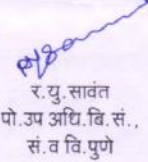 र.यु.सावंत
पो.उप अधि.बि.सं.,
सं.व वि.पुणे